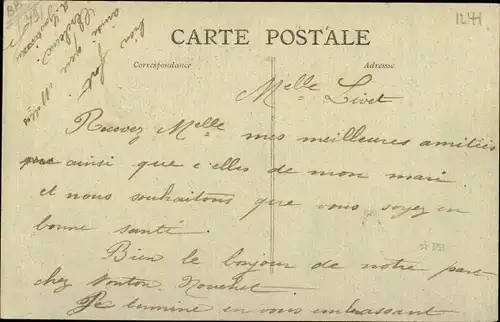 1241
CARTE POSTALE
Correspondance
Adresse
Melle Livet
Recevez Melle mes meilleures amitiées
ainsi que celles de mon mari
et nous souhaitons que vous soyez en
bonne santé.
Bien le bonjour de notre part
chez Tonton
Je termine en vous embrassant
bien fort